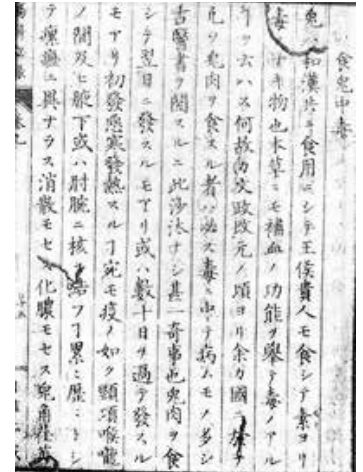 食兎中毒
兎ハ和漢共ニ食用ニシテ王侯貴人モ食シテ素ヨリ
毒ナキ物也本草ニモ補血ノ功能ヲ挙テ毒ノアル
ヿヲ云ハス何故カ文政改元ノ頃ヨリ余カ國ニ於テ
兎肉ヲ食スル者ハ必ス毒ニ中テ病ムモノ多シ
古醫書ヲ閲スルニ此沙汰ナシ甚奇事也兎肉ヲ食
シテ翌日ニ發スルモアリ或ハ数十日ヲ過テ發スル
モアリ初發悪寒發熱スルヿ宛モ疫ノ如ク頸項喉嚨
ノ間及ヒ腋下或ハ肘腕ニ核ヲ結フヿ累々歴々トシ
テ瘰癧ニ異ナラス消散モセス化膿モセス